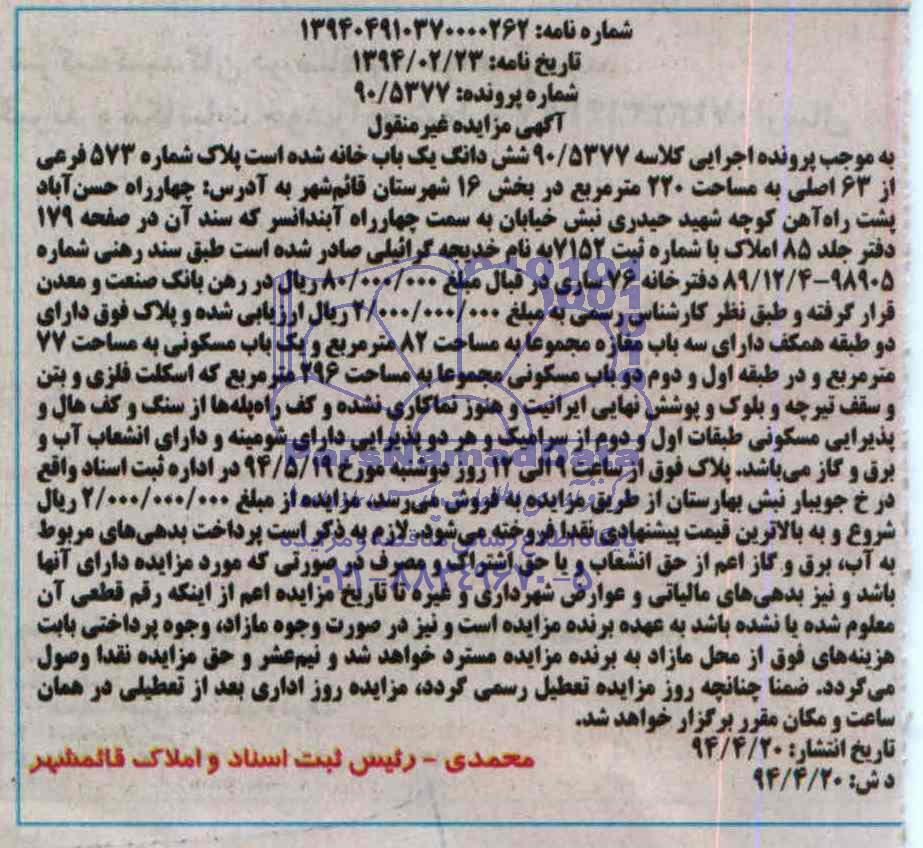 شماره نامه: ۱۳۹۴۰۴۹۱۰۳۷۰۰۰۰۲۶۲
تاریخ نامه: ۱۳۹۴/۰۲/۲۳
شماره پرونده: ۹۰/۵۳۷۷
آگهی مزایده غیرمنقول
به موجب پرونده اجرایی کلاسه ۹۰/۵۳۷۷ شش دانگ یک باب خانه شده است پلاک شماره ۵۷۳ فرعی
از ۶۳ اصلی به مساحت ۲۲۰ مترمربع در بخش ۱۶ شهرستان قائم‌شهر به آدرس: چهارراه حسن‌آباد
پشت راه‌آهن کوچه شهید حیدری نبش خیابان به سمت چهارراه آبندانسر که سند آن در صفحه ۱۷۹
دفتر جلد ۸۵ املاک با شماره ثبت ۷۱۵۲به نام خدیجه گرائیلی صادر شده است طبق سند رهنی شماره
۹۸۹۰۵-۸۹/۱۲/۴ دفترخانه ۷۶ ساری در قبال مبلغ ۸۰/۰۰۰/۰۰۰ ریال در رهن بانک صنعت و معدن
قرار گرفته و طبق نظر کارشناس رسمی به مبلغ ۲/۰۰۰/۰۰۰/۰۰۰ ریال ارزیابی شده و پلاک فوق دارای
دو طبقه همکف دارای سه باب مغازه مجموعا به مساحت ۸۲ مترمربع و یک باب مسکونی به مساحت ۷۷
مترمربع و در طبقه اول و دوم دو باب مسکونی مجموعا به مساحت ۲۹۶ مترمربع که اسکلت فلزی و بتن
و سقف تیرچه و بلوک و پوشش نهایی ایرانیت و هنوز نماکاری نشده و کف راه‌پله‌ها از سنگ و کف هال و
پذیرایی مسکونی طبقات اول و دوم از سرامیک و هر دو پذیرایی دارای شومینه و دارای انشعاب آب و
برق و گاز می‌باشد. پلاک فوق از ساعت ۹ الی ۱۲ روز دوشنبه مورخ ۹۴/۵/۱۹ در اداره ثبت اسناد واقع
در خ جویبار نبش بهارستان از طریق مزایده به فروش می‌رسد. مزایده از مبلغ ۲/۰۰۰/۰۰۰/۰۰۰ ریال
شروع و به بالاترین قیمت پیشنهادی نقدا فروخته می‌شود. لازم به ذکر است پرداخت بدهی‌های مربوط
به آب، برق و گاز اعم از حق انشعاب و یا حق اشتراک و مصرف در صورتی که مورد مزایده دارای آنها
باشد و نیز بدهی‌های مالیاتی و عوارض شهرداری و غیره تا تاریخ مزایده اعم از اینکه رقم قطعی آن
معلوم شده یا نشده باشد به عهده برنده مزایده است و نیز در صورت وجوه مازاد، وجوه پرداختی بابت
هزینه‌های فوق از محل مازاد به برنده مزایده مسترد خواهد شد و نیم‌عشر و حق مزایده نقدا وصول
می‌گردد. ضمنا چنانچه روز مزایده تعطیل رسمی گردد، مزایده روز اداری بعد از تعطیلی در همان
ساعت و مکان مقرر برگزار خواهد شد.
تاریخ انتشار: ۹۴/۴/۲۰
د ش: ۹۴/۴/۲۰
محمدی - رئیس ثبت اسناد و املاک قائمشهر
ParsNamadData
پایگاه اطلاع رسانی مناقصه و مزایده
۰۲۱-۸۸۳۴۹۶۷۰-۵